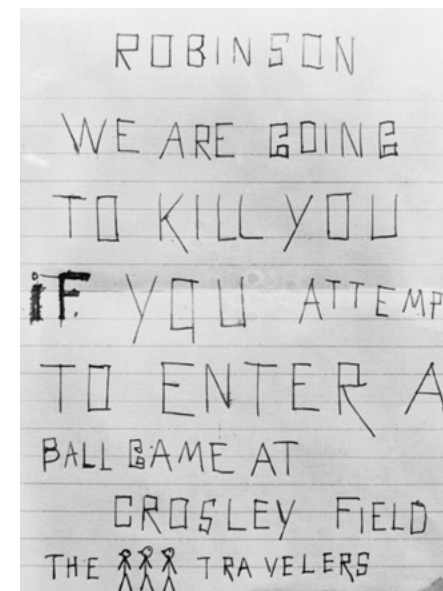 ROBINSON
WE ARE GOING
TO KILL YOU
iF. YOU ATTEMP
TO ENTER A
BALL GAME AT
CROSLEY FIELD
THE TRAVELERS